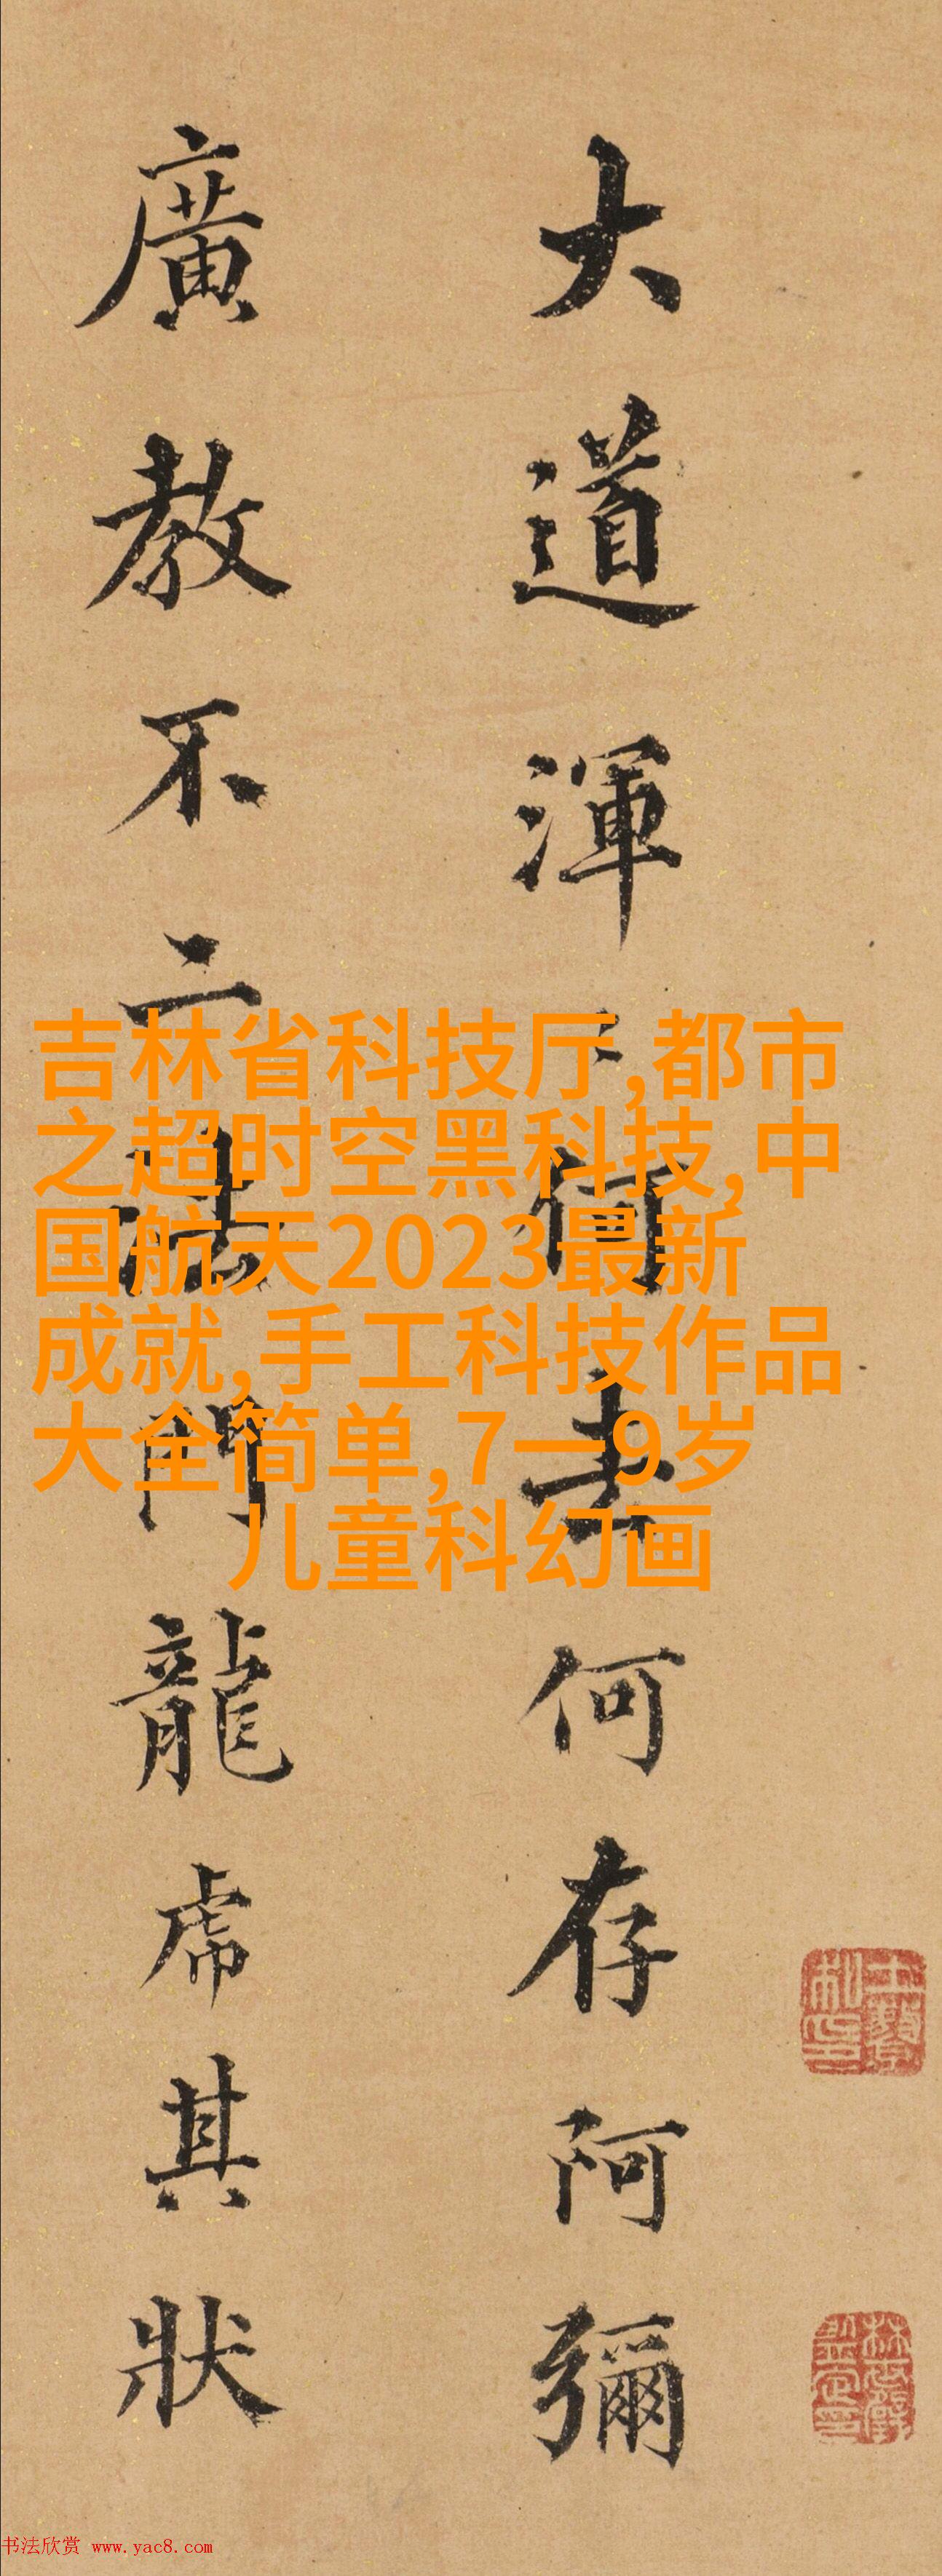 大道渾〻何去何存阿彌
廣教不二法門龍虎其狀
吉林省科技厅,都市
之超时空黑科技,中
国航天2023最新
成就,手工科技作品
大全简单,7一9岁
儿童科幻画
书法欣赏 www.yac8.com